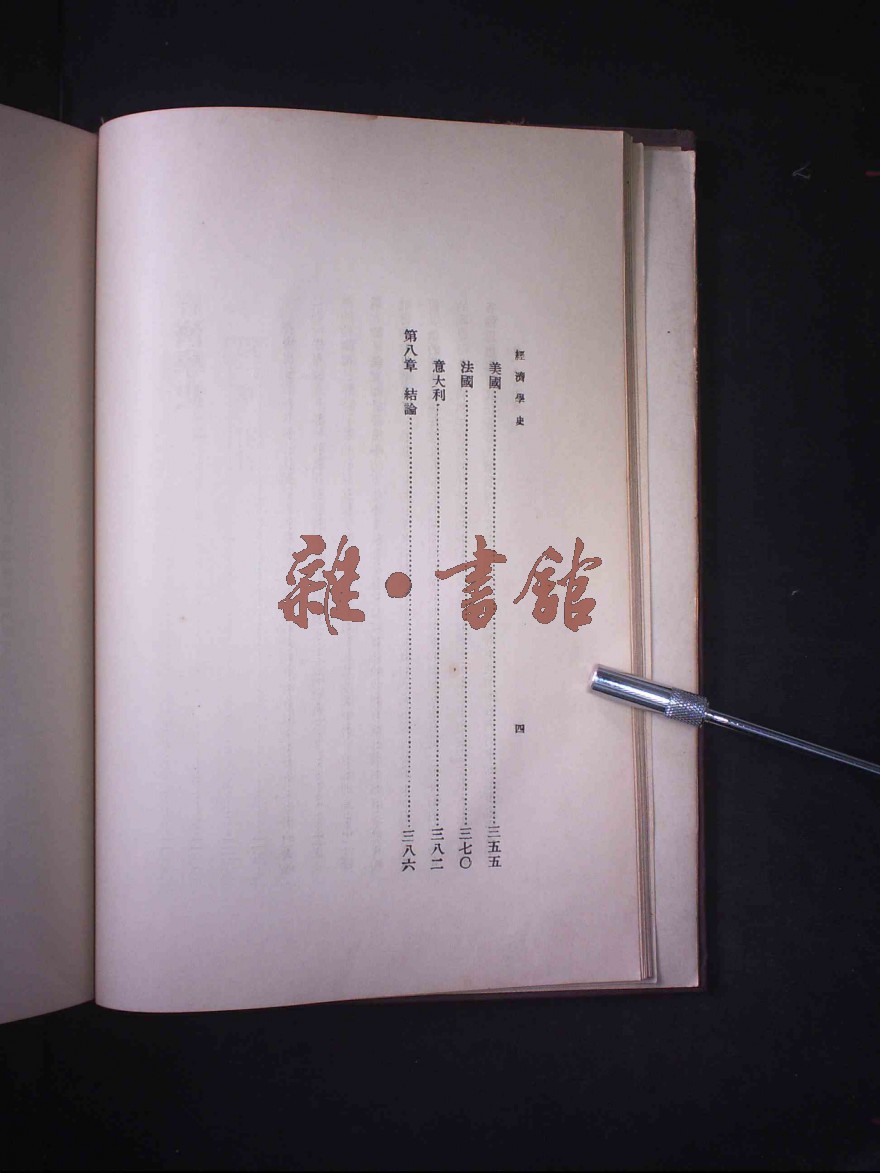 經濟學史
四
美國……三五五
法國……三七〇
意大利……三八二
第八章 結論……三八六
雜·書館